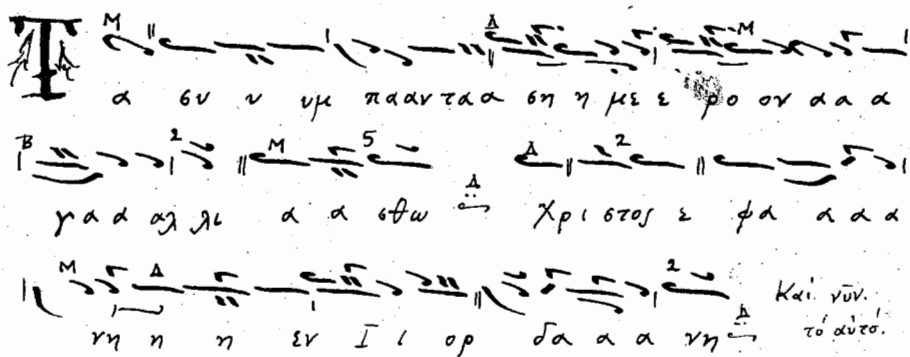 Τ α συ υ υμ πααν ταα ση η με ε ρο ον α α α
γ α α αλ λι α α σθω Χρι στος ε φα α α α
νη η η εν Ι ι ορ δα α α νη Και νῦν.
τὸ αὐτό.